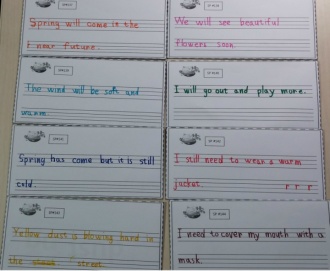 Spring will come in the
near future.
We will see beautiful
flowers soon.
The wind will be soft and
warm.
I will go out and play more.
Spring has come but it is still
cold.
I still need to wear a warm
jacket.
r r r
Yellow dust is blowing hard in
the street.
I need to cover my mouth with a
mask.